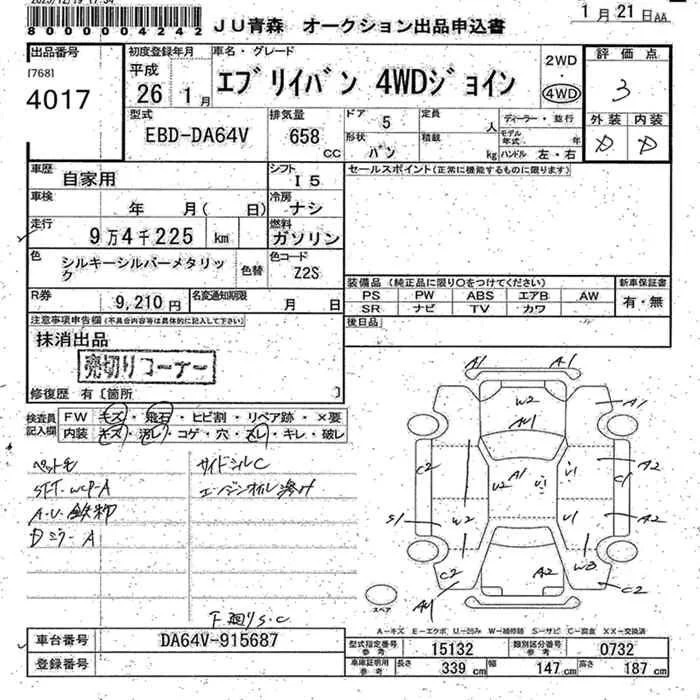 2025/12/19 17:34
8000004242
JU青森 オークション出品申込書
1月21日AA
出品番号
[768]
4017
初度登録年月
平成
26 1月
車名・グレード
エブリイバン 4WDジョイン
2WD
・
4WD
評価点
3
外装 内装
D D
型式
EBD-DA64V
排気量
658
CC
ドア 5
形状
バン
定員
人
積載
kg
ディーラー・並行
モデル
年式 年
ハンドル 左・右
車歴
自家用
シフト
I5
セールスポイント(正常に機能するものに限ります)
車検
年 月( 日)
冷房
ナシ
走行
9万4千225 km
燃料
ガソリン
色
シルキーシルバーメタリック
色替
色コード
Z2S
装備品(純正品に限り○をつけてください)
PS PW ABS エアB AW
SR ナビ TV カワ
新車保証書
有・無
R券
9,210円
名変通知期限
月 日
後日品
注意事項申告欄(不具合内容等は具体的に記入して下さい)
抹消出品
売切りコーナー
修復歴 有〔箇所 〕
検査員
記入欄
FW キズ・飛石・ヒビ割・リペア跡・×要
内装 キズ・汚レ・コゲ・穴・スレ・キレ・破レ
サイドシルC
エンジンオイル滲み
Dミラー A
下廻りS.C
A1 A1
W2
A1
C2
A1
U2
A2
C1
S1
W2
U1
A2
C2
A2
C2
スペア
A=キズ E=エクボ U=凹み W=補修跡 S=サビ C=腐食 XX=交換済
車台番号
DA64V-915687
登録番号
型式指定番号
参考
15132
類別区分番号
参考
0732
車庫証明用
参考
長さ 339 cm 幅 147 cm 高さ 187 cm